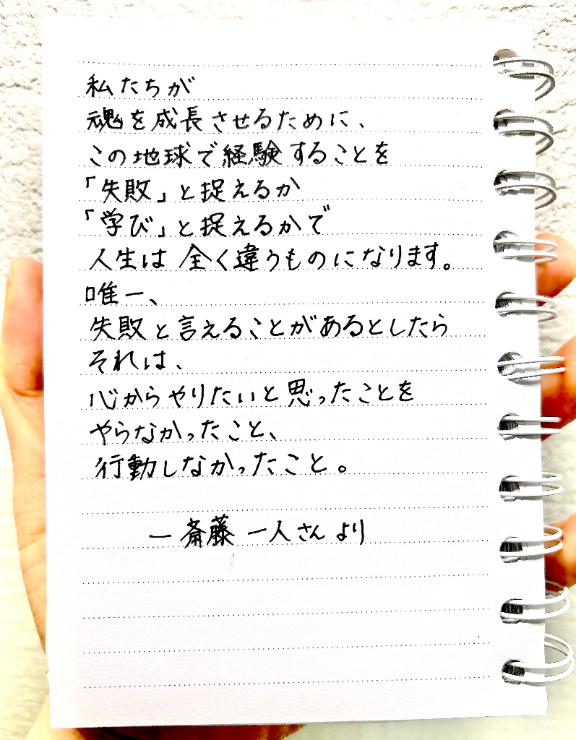 私たちが
魂を成長させるために、
この地球で経験することを
「失敗」と捉えるか
「学び」と捉えるかで
人生は全く違うものになります。
唯一、
失敗と言えることがあるとしたら
それは、
心からやりたいと思ったことを
やらなかったこと、
行動しなかったこと。
ー斎藤一人さんより